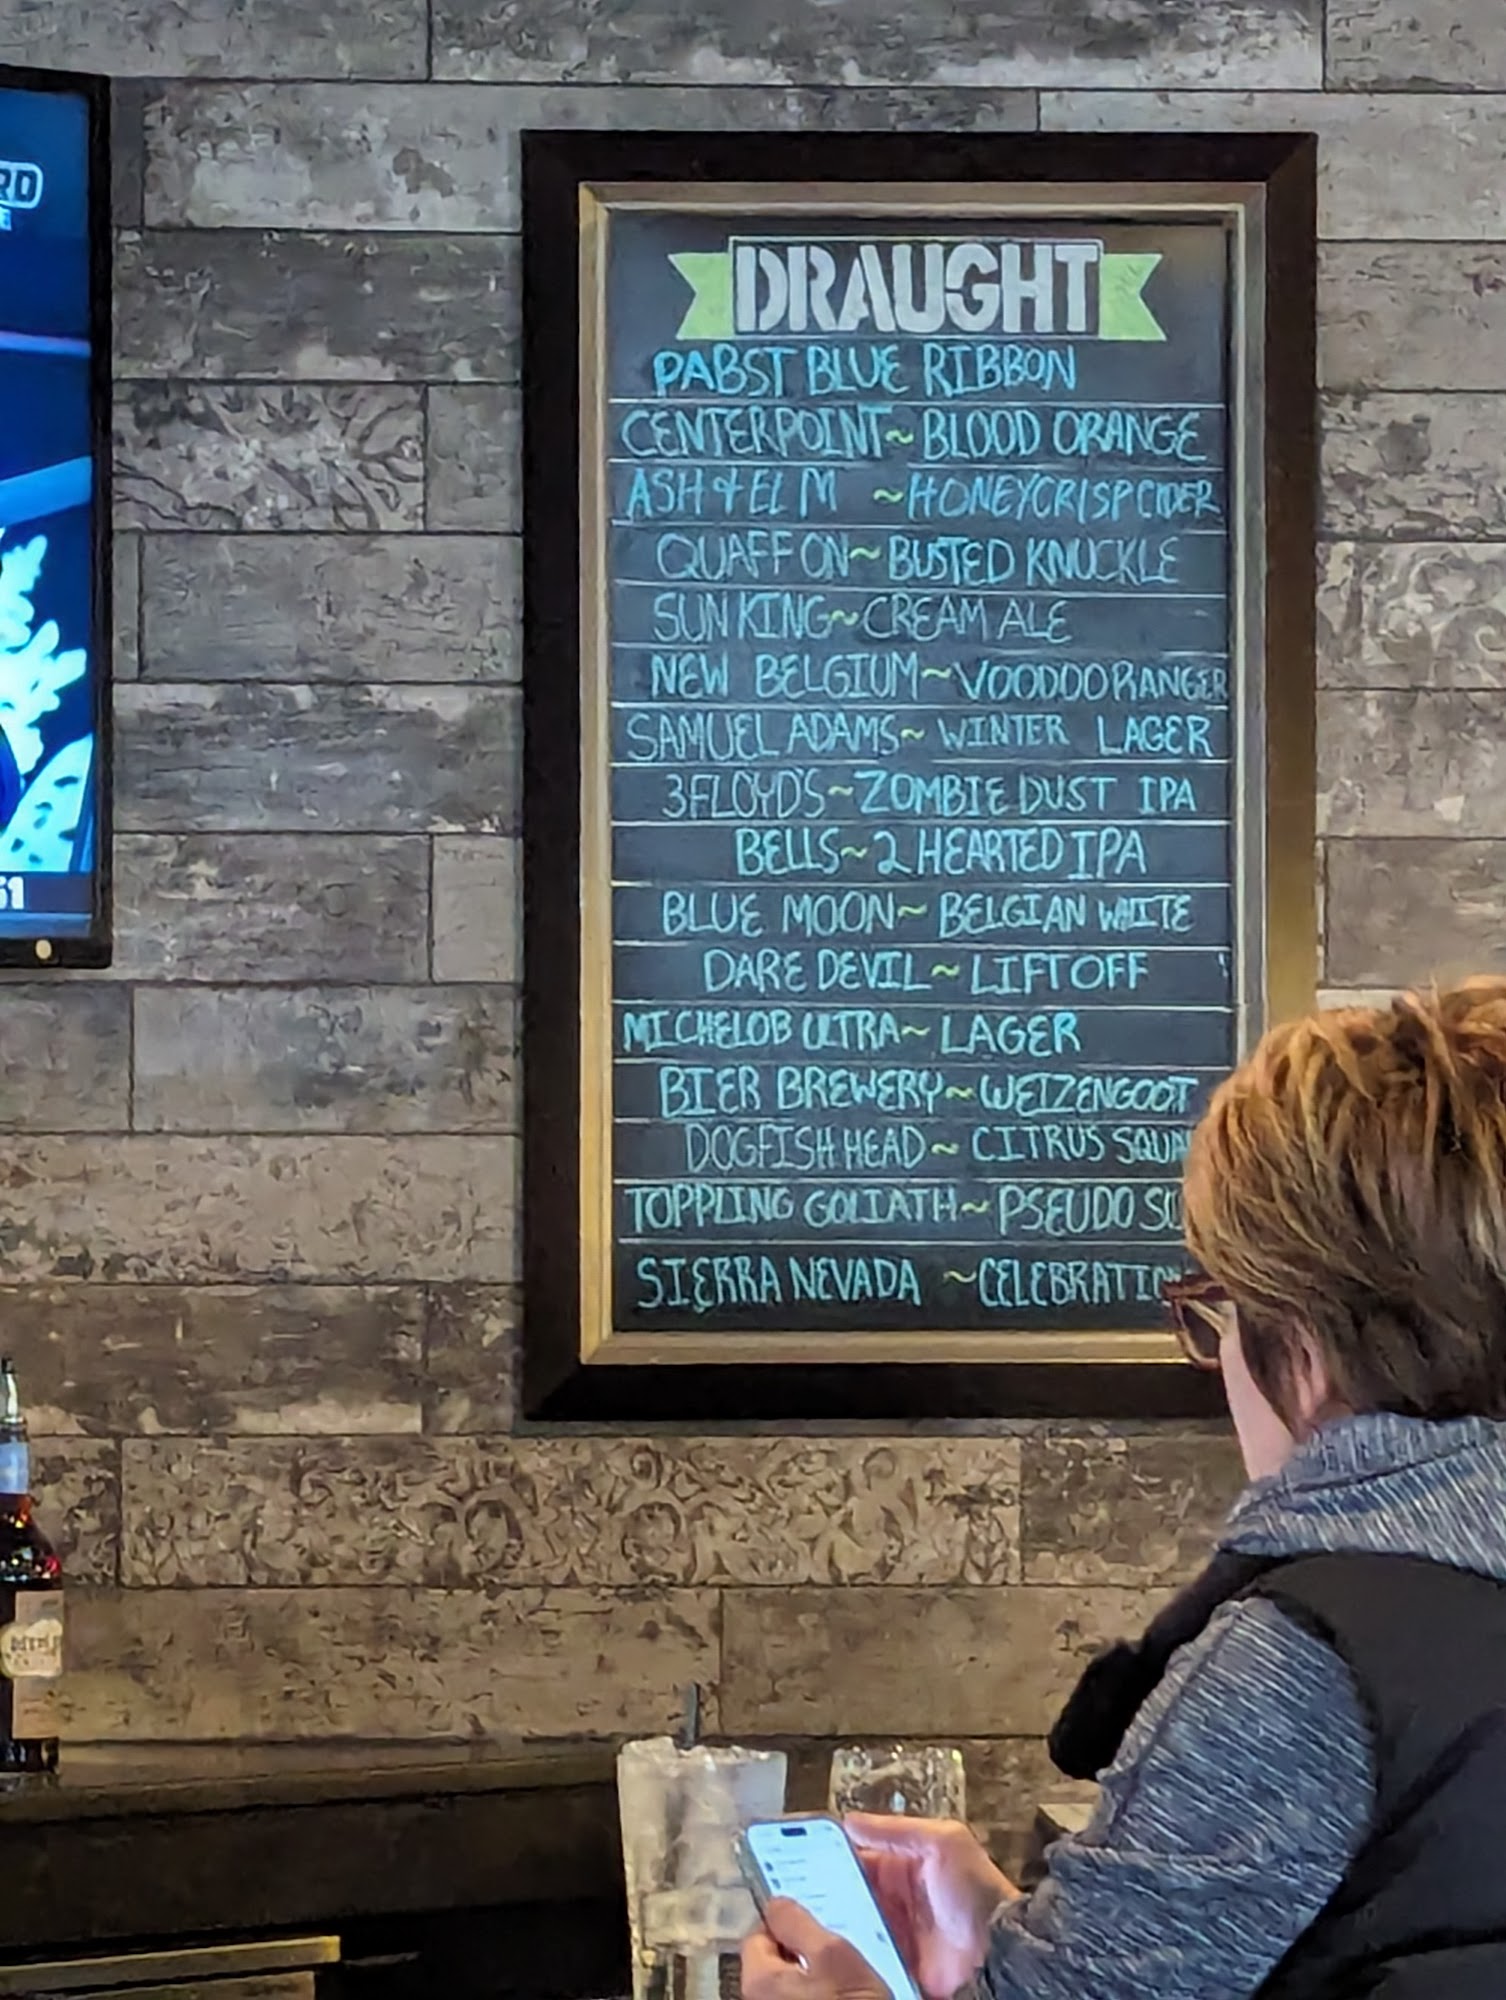 RD
DRAUGHT
PABST BLUE RIBBON
CENTERPOINT~BLOOD ORANGE
ASH & ELM ~HONEYCRISP CIDER
QUAFF ON~BUSTED KNUCKLE
SUN KING~CREAM ALE
NEW BELGIUM~VOODOO RANGER
SAMUEL ADAMS~WINTER LAGER
3 FLOYD'S~ZOMBIE DUST IPA
BELLS~2 HEARTED IPA
BLUE MOON~BELGIAN WHITE
DARE DEVIL~LIFT OFF
MICHELOB ULTRA~LAGER
BIER BREWERY~WEIZENGOOT
DOGFISH HEAD~CITRUS SQUA
TOPPLING GOLIATH~PSEUDO SU
SIERRA NEVADA ~CELEBRATIO
51